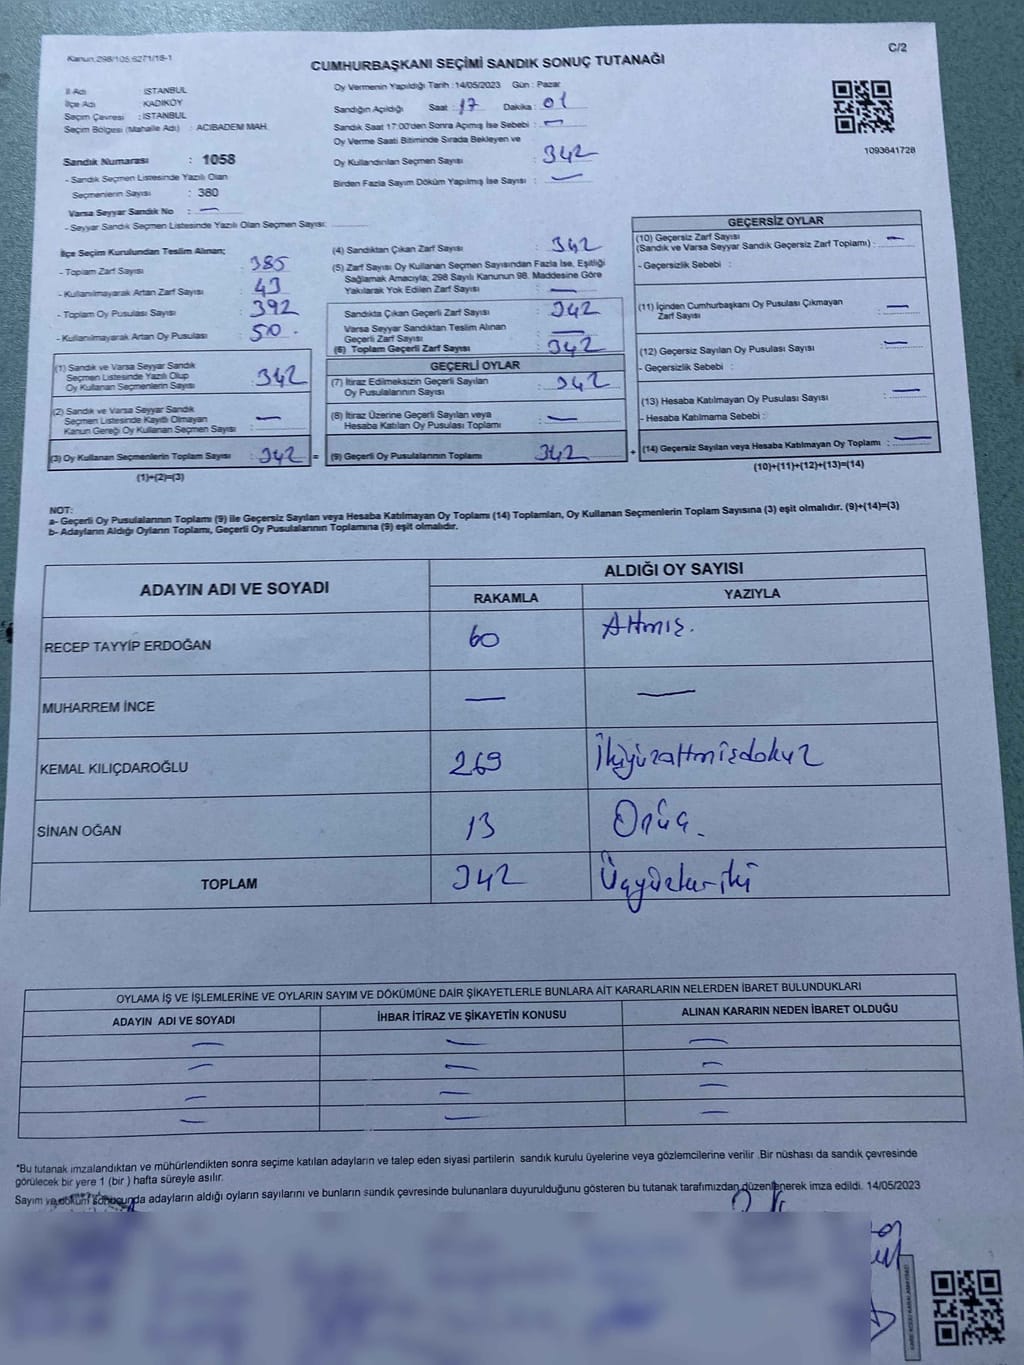 Kanun,298/105,6271/18-1
C/2
CUMHURBAŞKANI SEÇİMİ SANDIK SONUÇ TUTANAĞI
İl Adı : İSTANBUL
İlçe Adı : KADIKÖY
Seçim Çevresi : İSTANBUL
Seçim Bölgesi (Mahalle Adı) : ACIBADEM MAH.
Sandık Numarası : 1058
- Sandık Seçmen Listesinde Yazılı Olan
Seçmenlerin Sayısı : 380
Varsa Seyyar Sandık No : —
- Seyyar Sandık Seçmen Listesinde Yazılı Olan Seçmen Sayısı:
Oy Vermenin Yapıldığı Tarih :14/05/2023 Gün : Pazar
Sandığın Açıldığı Saat : 17 Dakika : 01
Sandık Saat 17:00'den Sonra Açılmış İse Sebebi : —
Oy Verme Saati Bitiminde Sırada Bekleyen ve
Oy Kullandırılan Seçmen Sayısı : 342
Birden Fazla Sayım Döküm Yapılmış İse Sayısı : —
1093641728
İlçe Seçim Kurulundan Teslim Alınan;
- Toplam Zarf Sayısı : 385
- Kullanılmayarak Artan Zarf Sayısı : 43
- Toplam Oy Pusulası Sayısı : 392
- Kullanılmayarak Artan Oy Pusulası : 50.
(1) Sandık ve Varsa Seyyar Sandık
Seçmen Listesinde Yazılı Olup
Oy Kullanan Seçmenlerin Sayısı : 342
(2) Sandık ve Varsa Seyyar Sandık
Seçmen Listesinde Kayıtlı Olmayan
Kanun Gereği Oy Kullanan Seçmen Sayısı : —
(3) Oy Kullanan Seçmenlerin Toplam Sayısı : 342 =
(1)+(2)=(3)
(4) Sandıktan Çıkan Zarf Sayısı : 342
(5) Zarf Sayısı Oy Kullanan Seçmen Sayısından Fazla İse, Eşitliği
Sağlamak Amacıyla; 298 Sayılı Kanunun 98. Maddesine Göre
Yakılarak Yok Edilen Zarf Sayısı : —
Sandıkta Çıkan Geçerli Zarf Sayısı : 342
Varsa Seyyar Sandıktan Teslim Alınan
Geçerli Zarf Sayısı : —
(6) Toplam Geçerli Zarf Sayısı : 342
GEÇERLİ OYLAR
(7) İtiraz Edilmeksizin Geçerli Sayılan
Oy Pusulalarının Sayısı : 342
(8) İtiraz Üzerine Geçerli Sayılan veya
Hesaba Katılan Oy Pusulası Toplamı : —
(9) Geçerli Oy Pusulalarının Toplamı : 342 +
GEÇERSİZ OYLAR
(10) Geçersiz Zarf Sayısı
(Sandık ve Varsa Seyyar Sandık Geçersiz Zarf Toplamı) : —
- Geçersizlik Sebebi :
(11) İçinden Cumhurbaşkanı Oy Pusulası Çıkmayan
Zarf Sayısı : —
(12) Geçersiz Sayılan Oy Pusulası Sayısı : —
- Geçersizlik Sebebi :
(13) Hesaba Katılmayan Oy Pusulası Sayısı : —
- Hesaba Katılmama Sebebi :
(14) Geçersiz Sayılan veya Hesaba Katılmayan Oy Toplamı : —
(10)+(11)+(12)+(13)=(14)
NOT:
a- Geçerli Oy Pusulalarının Toplamı (9) ile Geçersiz Sayılan veya Hesaba Katılmayan Oy Toplamı (14) Toplamları, Oy Kullanan Seçmenlerin Toplam Sayısına (3) eşit olmalıdır. (9)+(14)=(3)
b- Adayların Aldığı Oyların Toplamı, Geçerli Oy Pusulalarının Toplamına (9) eşit olmalıdır.
ADAYIN ADI VE SOYADI
ALDIĞI OY SAYISI
RAKAMLA YAZIYLA
RECEP TAYYİP ERDOĞAN 60 Altmış.
MUHARREM İNCE — —
KEMAL KILIÇDAROĞLU 269 İkiyüzaltmışdokuz
SİNAN OĞAN 13 Onüç.
TOPLAM 342 Üçyüzkırkiki
OYLAMA İŞ VE İŞLEMLERİNE VE OYLARIN SAYIM VE DÖKÜMÜNE DAİR ŞİKAYETLERLE BUNLARA AİT KARARLARIN NELERDEN İBARET BULUNDUKLARI
ADAYIN ADI VE SOYADI İHBAR İTİRAZ VE ŞİKAYETİN KONUSU ALINAN KARARIN NEDEN İBARET OLDUĞU
— — —
— — —
— — —
— — —
*Bu tutanak imzalandıktan ve mühürlendikten sonra seçime katılan adayların ve talep eden siyasi partilerin sandık kurulu üyelerine veya gözlemcilerine verilir .Bir nüshası da sandık çevresinde
görülecek bir yere 1 (bir ) hafta süreyle asılır.
Sayım ve döküm sonucunda adayların aldığı oyların sayılarını ve bunların sandık çevresinde bulunanlara duyurulduğunu gösteren bu tutanak tarafımızdan düzenlenerek imza edildi. 14/05/2023